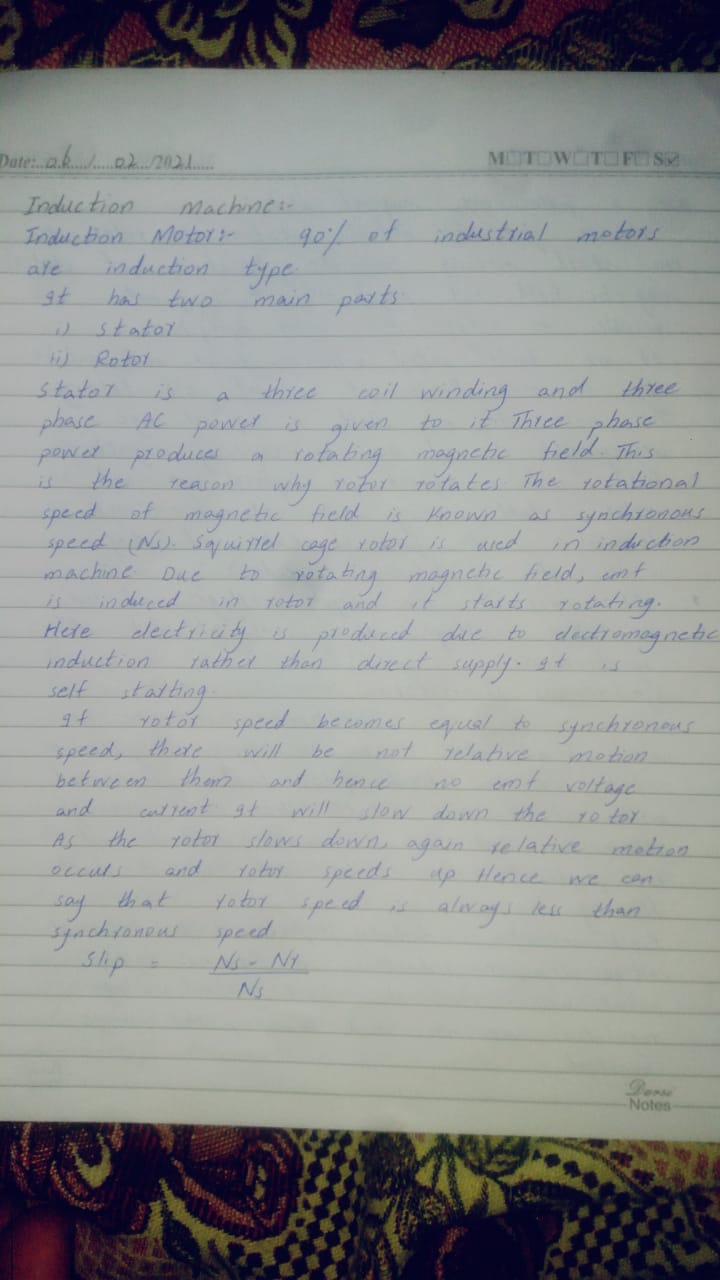 Date:..06..../....02.../2021.....
M T W T F S
Induction Machine:-
Induction Motor:- 90% of industrial motors
are induction type.
It has two main parts
i) Stator
ii) Rotor
Stator is a three coil winding and three
phase AC power is given to it Three phase
power produces a rotating magnetic field. This
is the reason why rotor rotates. The rotational
speed of magnetic field is known as synchronous
speed (Ns). Squirrel cage rotor is used in induction
machine Due to rotating magnetic field, emf
is induced in rotor and it starts rotating.
Here electricity is produced due to electromagnetic
induction rather than direct supply. It is
self starting.
If rotor speed becomes equal to synchronous
speed, there will be not relative motion
between them and hence no emf voltage
and current It will slow down the rotor
As the rotor slows down, again relative motion
occurs and rotor speeds up Hence we can
say that rotor speed is always less than
synchronous speed
Slip = Ns - Nr
Ns
Darsi
Notes